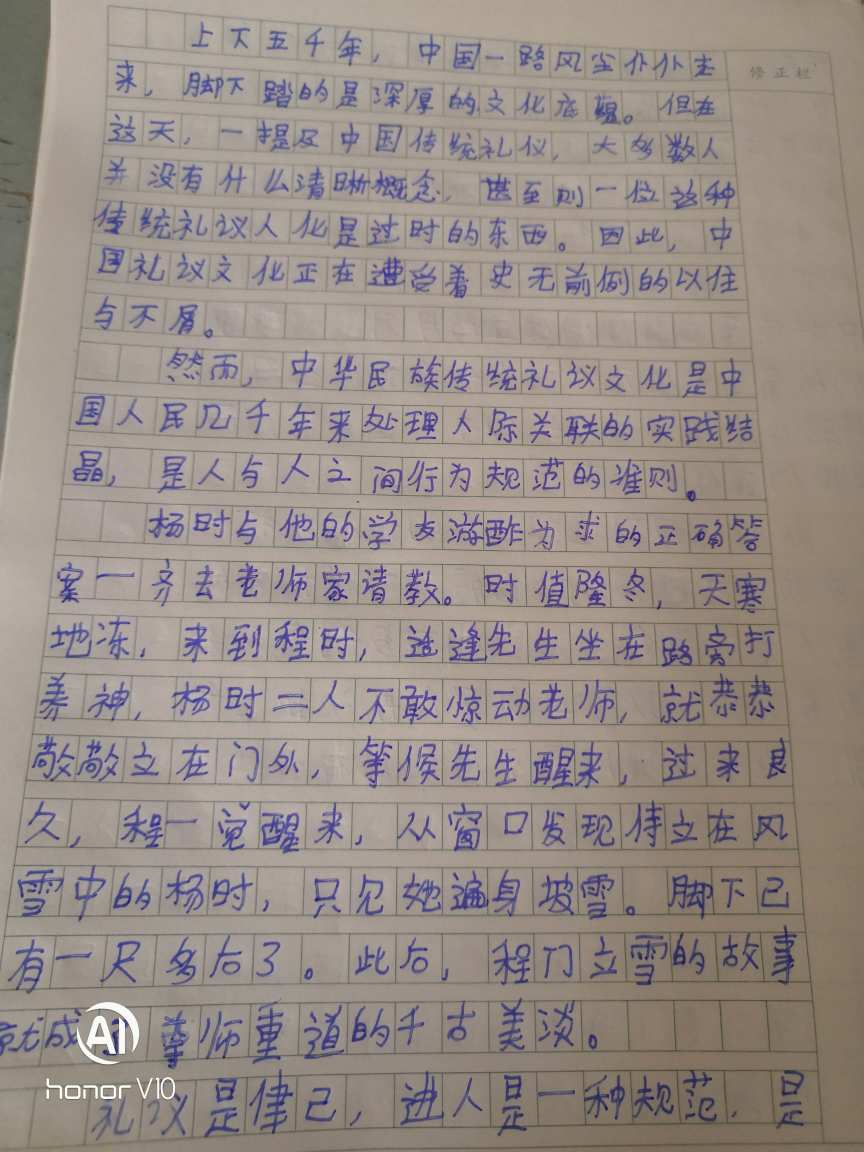 上下五千年，中国一路风尘仆仆走
修正栏
来，脚下踏的是深厚的文化底蕴。但在
这天，一提及中国传统礼仪，大多数人
并没有什么清晰概念，甚至则一位这种
传统礼议人化是过时的东西。因此，中
国礼议文化正在遭受着史无前例的以住
与不屑。
然而，中华民族传统礼议文化是中
国人民几千年来处理人际关联的实践结
晶，是人与人之间行为规范的准则。
杨时与他的学友游酢为求的正确答
案一齐去老师家请教。时值隆冬，天寒
地冻，来到程时，逢先生坐在路旁打
养神，杨时二人不敢惊动老师，就恭恭
敬敬立在门外，等候先生醒来，过来良
久，程一觉醒来，从窗口发现侍立在风
雪中的杨时，只见她遍身坡雪。脚下已
有一尺多后了。此后，程门立雪的故事
就成了尊师重道的千古美淡。
礼议是律己，进人是一种规范，是
AI
honor V10